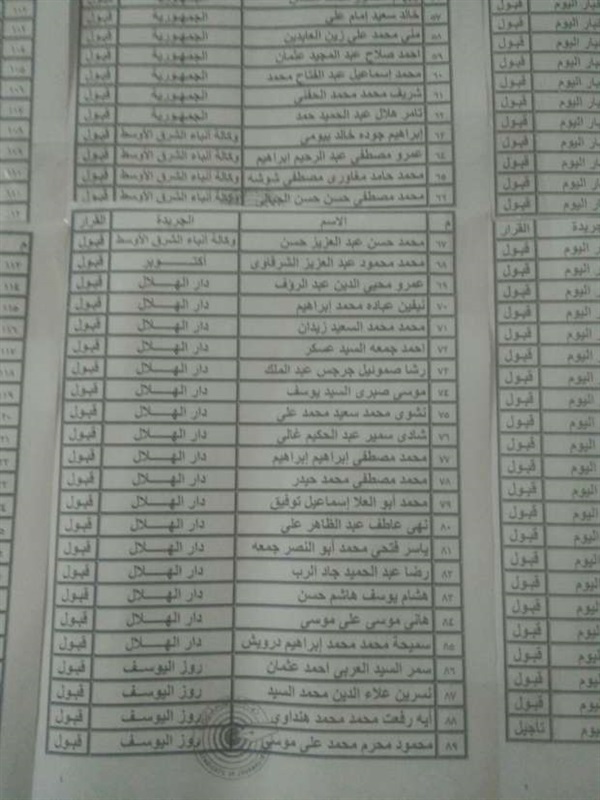 ٥٧ خالد سعيد إمام على الجمهورية قبول
٥٨ منى محمد على زين العابدين الجمهورية قبول
٥٩ احمد صلاح عبد المجيد عثمان الجمهورية قبول
٦٠ محمد إسماعيل عبد الفتاح محمد الجمهورية قبول
٦١ شريف محمد محمد الحفنى الجمهورية قبول
٦٢ تامر هلال عبد الحميد حمد الجمهورية قبول
٦٣ إبراهيم جوده خالد بيومى وكالة أنباء الشرق الأوسط قبول
٦٤ عمرو مصطفى عبد الرحيم إبراهيم وكالة أنباء الشرق الأوسط قبول
٦٥ محمد حامد مغاورى مصطفى شوشه وكالة أنباء الشرق الأوسط قبول
٦٦ محمد مصطفى حسن حسن وكالة أنباء الشرق الأوسط قبول
م الاسم الجريدة القرار
٦٧ محمد حسن عبد العزيز حسن وكالة أنباء الشرق الأوسط قبول
٦٨ محمد محمود عبد العزيز الشرقاوى أكتـــوبر قبول
٦٩ عمرو محيى الدين عبد الرؤف دار الهـــلال قبول
٧٠ نيفين عباده محمد إبراهيم دار الهـــلال قبول
٧١ محمد محمد السعيد زيدان دار الهـــلال قبول
٧٢ احمد جمعه السيد عسكر دار الهـــلال قبول
٧٣ رشا صموئيل جرجس عبد الملك دار الهـــلال قبول
٧٤ موسى صبرى السيد يوسف دار الهـــلال قبول
٧٥ نشوى محمد سعيد محمد على دار الهـــلال قبول
٧٦ شادى سمير عبد الحكيم غالى دار الهـــلال قبول
٧٧ محمد مصطفى إبراهيم إبراهيم دار الهـــلال قبول
٧٨ محمد مصطفى محمد حيدر دار الهـــلال قبول
٧٩ محمد أبو العلا إسماعيل توفيق دار الهـــلال قبول
٨٠ نهى عاطف عبد الظاهر على دار الهـــلال قبول
٨١ ياسر فتحى محمد أبو النصر جمعه دار الهـــلال قبول
٨٢ رضا عبد الحميد جاد الرب دار الهـــلال قبول
٨٣ هشام يوسف هاشم حسن دار الهـــلال قبول
٨٤ هانى موسى على موسى دار الهـــلال قبول
٨٥ سميحة محمد محمد إبراهيم درويش دار الهـــلال قبول
٨٦ سمر السيد العربى احمد عثمان روز اليوسف قبول
٨٧ نسرين علاء الدين محمد السيد روز اليوسف قبول
٨٨ آيه رفعت محمد محمد هنداوى روز اليوسف قبول
٨٩ محمود محرم محمد على موسى روز اليوسف قبول